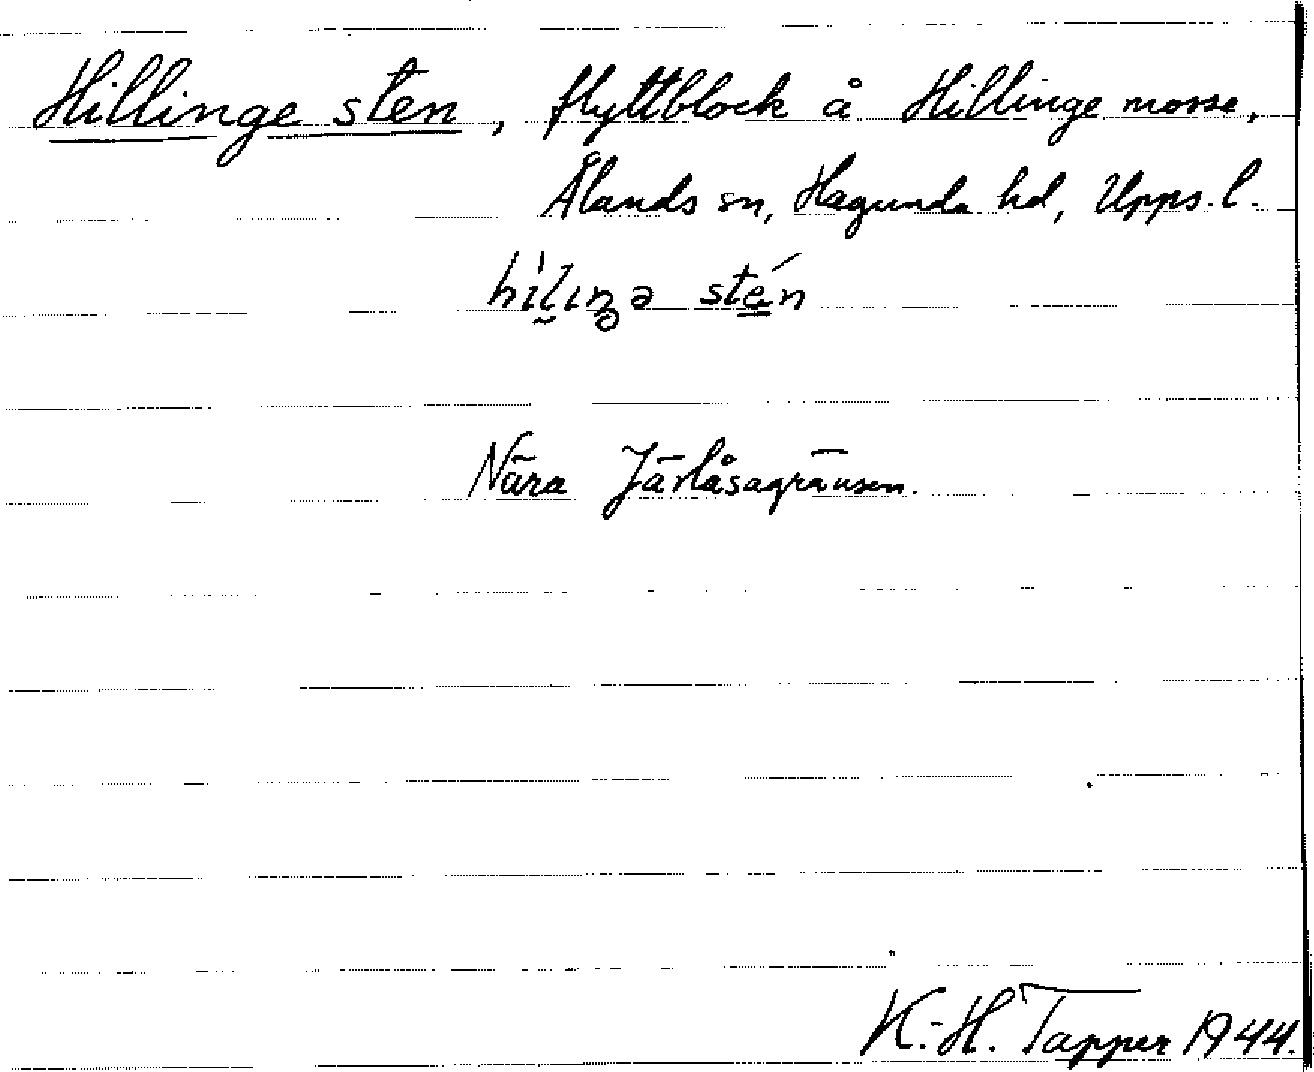 Hillinge sten, flyttblock å Hillinge mosse,
Ålands sn, Hagunda hd, Upps. l.
hìlıŋə stén
Nära Järlåsagränsen.
K.-H. Tapper 1944.